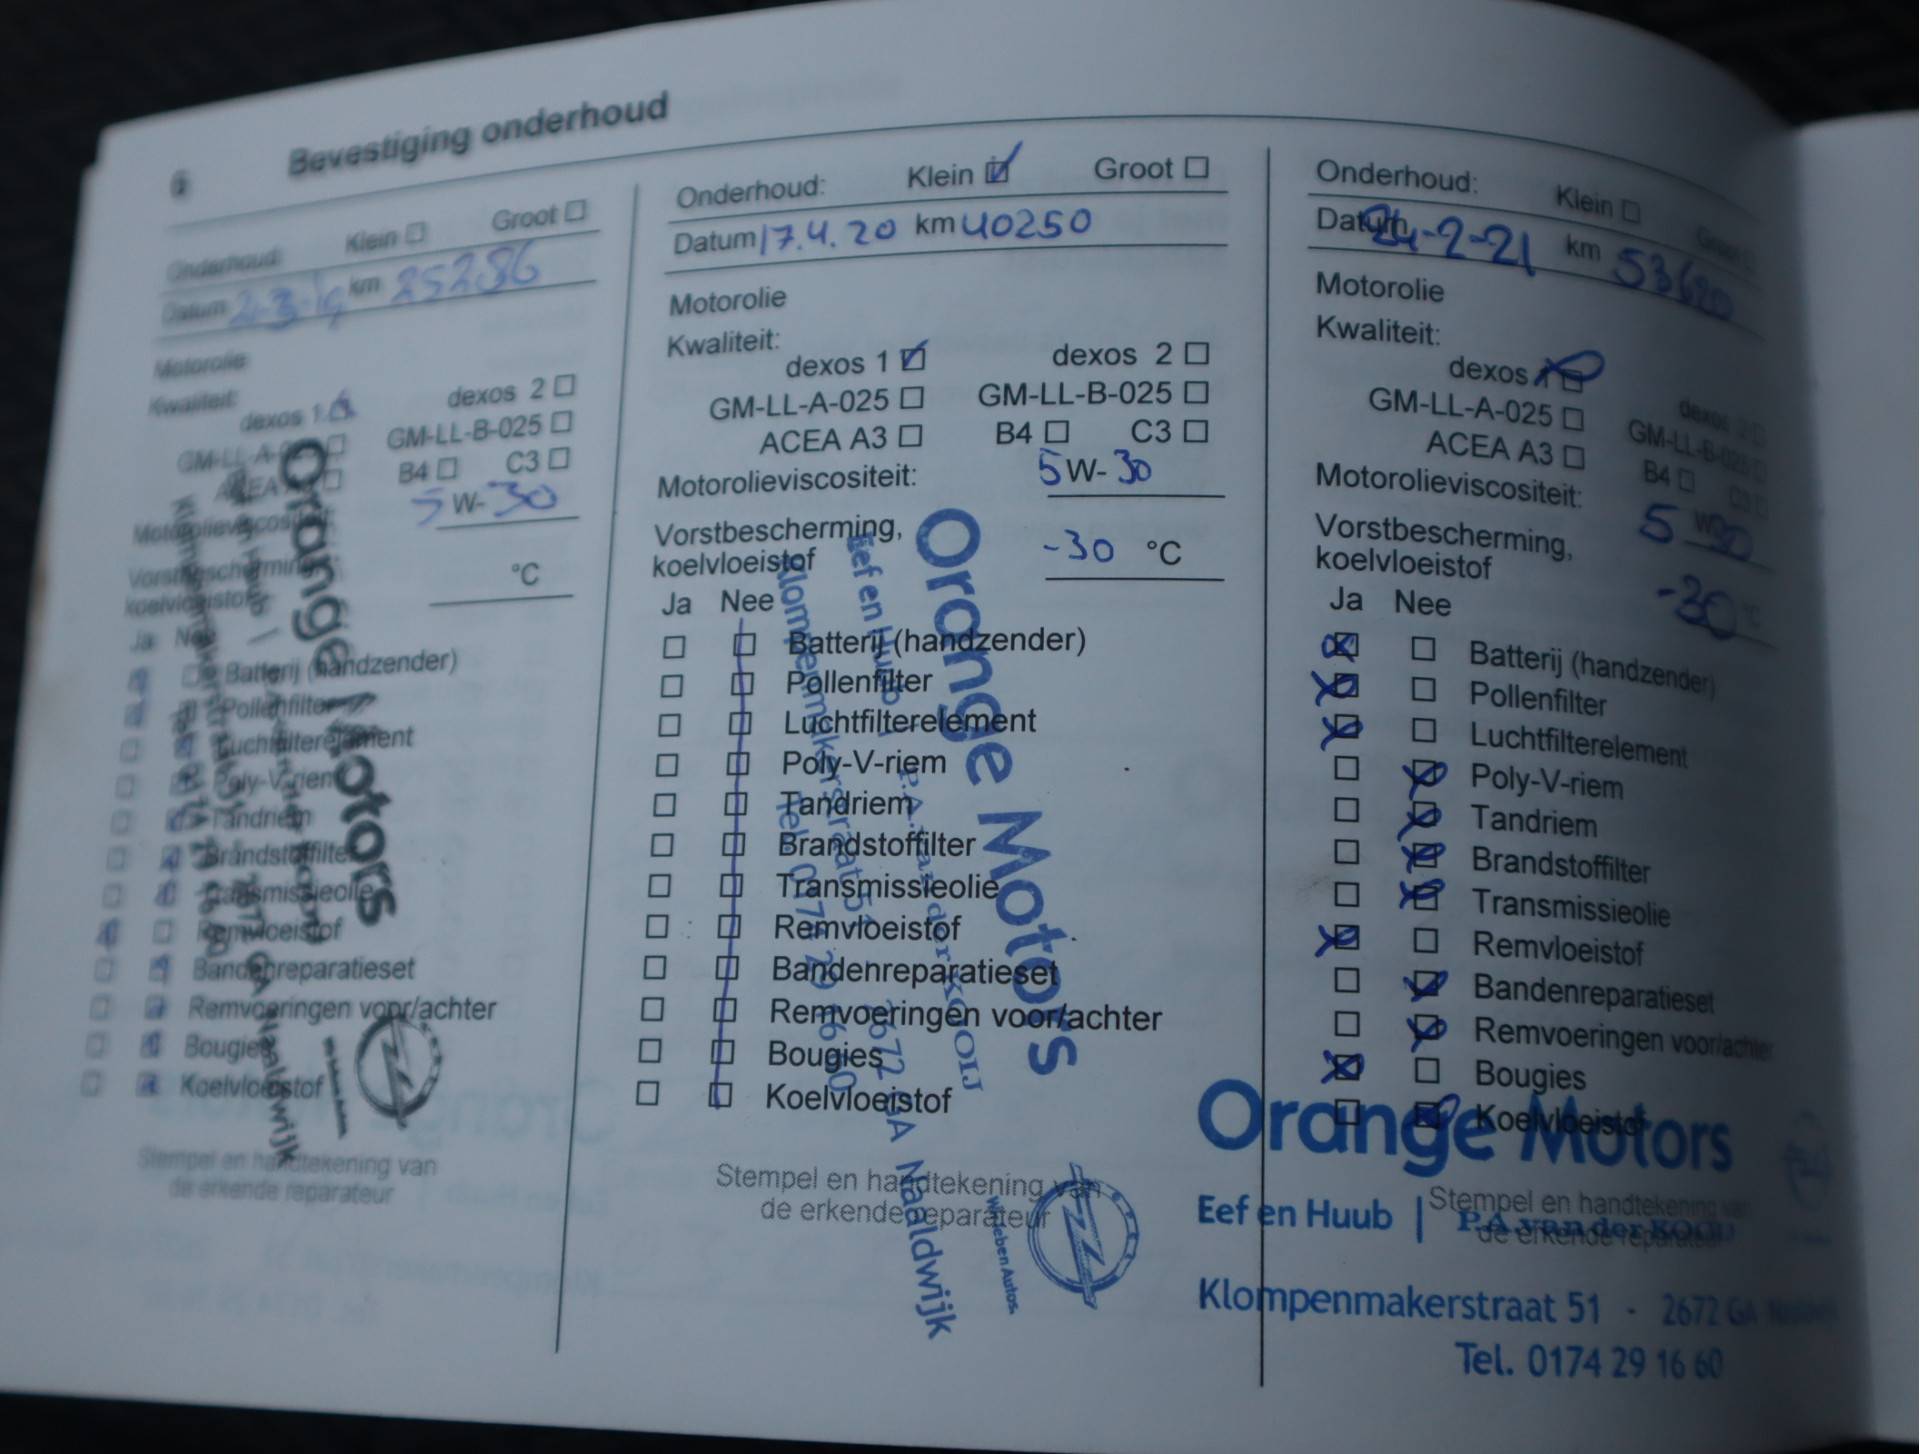 6 Bevestiging onderhoud
Onderhoud: Klein Groot
Datum 2-3-19 km 25286
Motorolie
Kwaliteit:
dexos 1 dexos 2
GM-LL-A-025 GM-LL-B-025
ACEA A3 B4 C3
Motorolieviscositeit: 5 W- 30
Vorstbescherming,
koelvloeistof °C
Ja Nee
Batterij (handzender)
Pollenfilter
Luchtfilterelement
Poly-V-riem
Tandriem
Brandstoffilter
Transmissieolie
Remvloeistof
Bandenreparatieset
Remvoeringen voor/achter
Bougies
Koelvloeistof
Stempel en handtekening van
de erkende reparateur
Orange Motors
Eef en Huub |
Klompenmakerstraat 51 2672 GA Naaldwijk
Onderhoud: Klein Groot
Datum 17.4.20 km 40250
Motorolie
Kwaliteit:
dexos 1 dexos 2
GM-LL-A-025 GM-LL-B-025
ACEA A3 B4 C3
Motorolieviscositeit: 5 W- 30
Vorstbescherming,
koelvloeistof -30 °C
Ja Nee
Batterij (handzender)
Pollenfilter
Luchtfilterelement
Poly-V-riem
Tandriem
Brandstoffilter
Transmissieolie
Remvloeistof
Bandenreparatieset
Remvoeringen voor/achter
Bougies
Koelvloeistof
Stempel en handtekening van
de erkende reparateur
Orange Motors
Eef en Huub | P.A. van der KOOIJ
Klompenmakerstraat 51 2672 GA Naaldwijk
Tel. 0174 29 16 60
Wij leben Autos.
Onderhoud: Klein Groot
Datum 24-2-21 km
Motorolie
Kwaliteit:
dexos 1 dexos 2
GM-LL-A-025 GM-LL-B-025
ACEA A3 B4 C3
Motorolieviscositeit: 5 W 30
Vorstbescherming,
koelvloeistof -30 °C
Ja Nee
Batterij (handzender)
Pollenfilter
Luchtfilterelement
Poly-V-riem
Tandriem
Brandstoffilter
Transmissieolie
Remvloeistof
Bandenreparatieset
Remvoeringen voor/achter
Bougies
Koelvloeistof
Orange Motors
Stempel en handtekening van
de erkende reparateur
Eef en Huub | P.A. van der KOOIJ
Klompenmakerstraat 51 - 2672 GA Naaldwijk
Tel. 0174 29 16 60